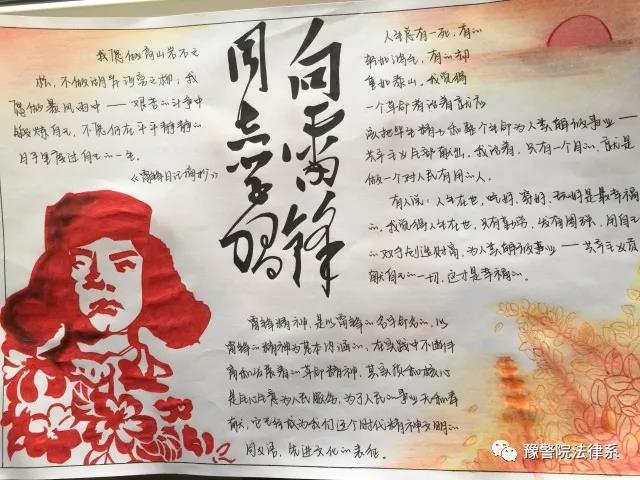 向雷锋
同志学习
我愿做高山岩石之
松，不做湖岸河旁之柳，我
愿做暴风雨中——艰苦的斗争中
锻炼自己，不愿做在平平静静的
日子里度过自己的一生。
《雷锋日记摘抄》
人生总有一死，有的
轻如鸿毛，有的却
重如泰山。我觉得
一个革命者活着就应
该把毕生精力和整个生命为人类解放事业——
共产主义全部献出。我活着，只有一个目的，就是
做一个对人民有用的人。
有人说：人生在世，吃好、穿好、玩好是最幸福
的。我觉得人生在世，只有勤劳，发有图强，用自己
的双手创造财富，为人类解放事业——共产主义贡
献自己的一切，这才是幸福的。
雷锋精神，是以雷锋的名字命名的，以
雷锋的精神为基本内涵的，在实践中不断丰
富和发展着的革命精神，其实质和核心
是全心全意为人民服务，为了人民的事业无私奉
献，它已经成为我们这个时代精神文明的
同义语，先进文化的表征。
豫警院法律系